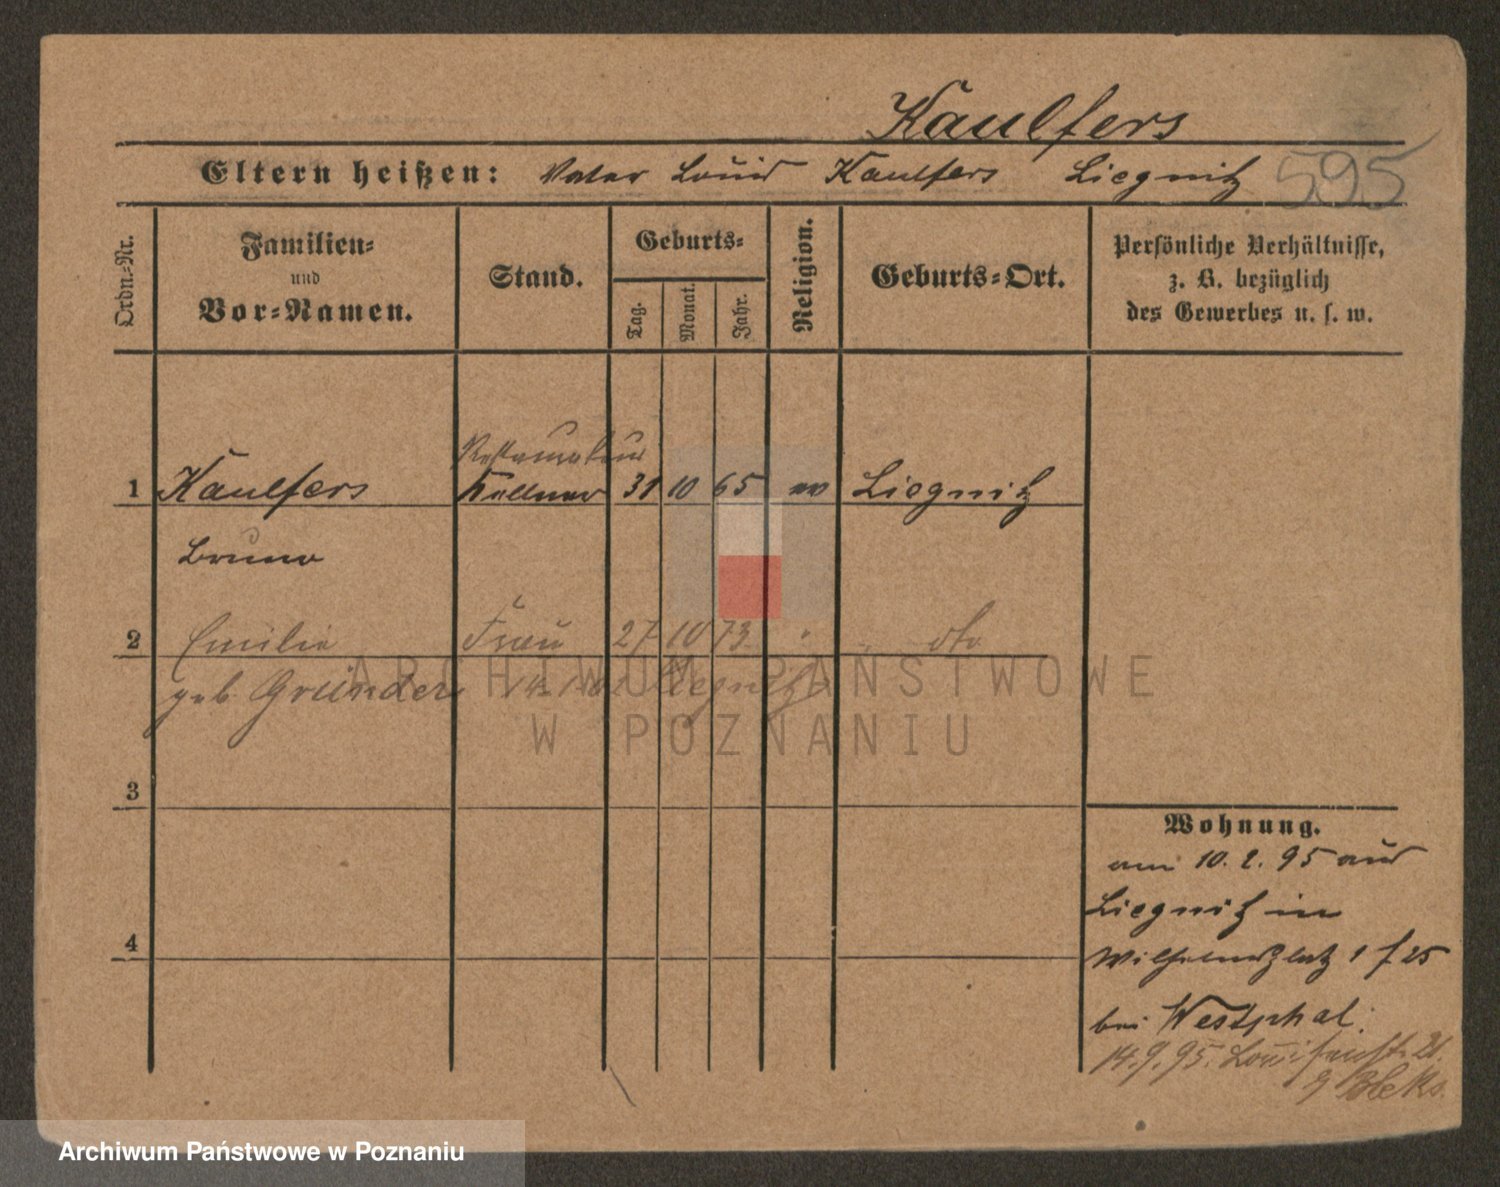 Kaulfers
595
Eltern heißen: Vater Louis Kaulfers Liegnitz
Ordn.-Nr.
Familien-
und
Vor-Namen.
Stand.
Geburts-
Tag.
Monat.
Jahr.
Religion.
Geburts-Ort.
Persönliche Verhältnisse,
z. B. bezüglich
des Gewerbes u. s. w.
Restaurateur
1 Kaulfers Kellner 31 10 65 ev Liegnitz
Bruno
2 Emilie Frau 27 10 73 " dto
geb. Gründer Liegnitz
3
4
Wohnung.
am 10. 2. 95 aus
Liegnitz in
Wilhelmsplatz 1 f 25
bei Westphal.
14. 9. 95. Louisenstr 21.
ARCHIWUM PAŃSTWOWE
W POZNANIU
Archiwum Państwowe w Poznaniu